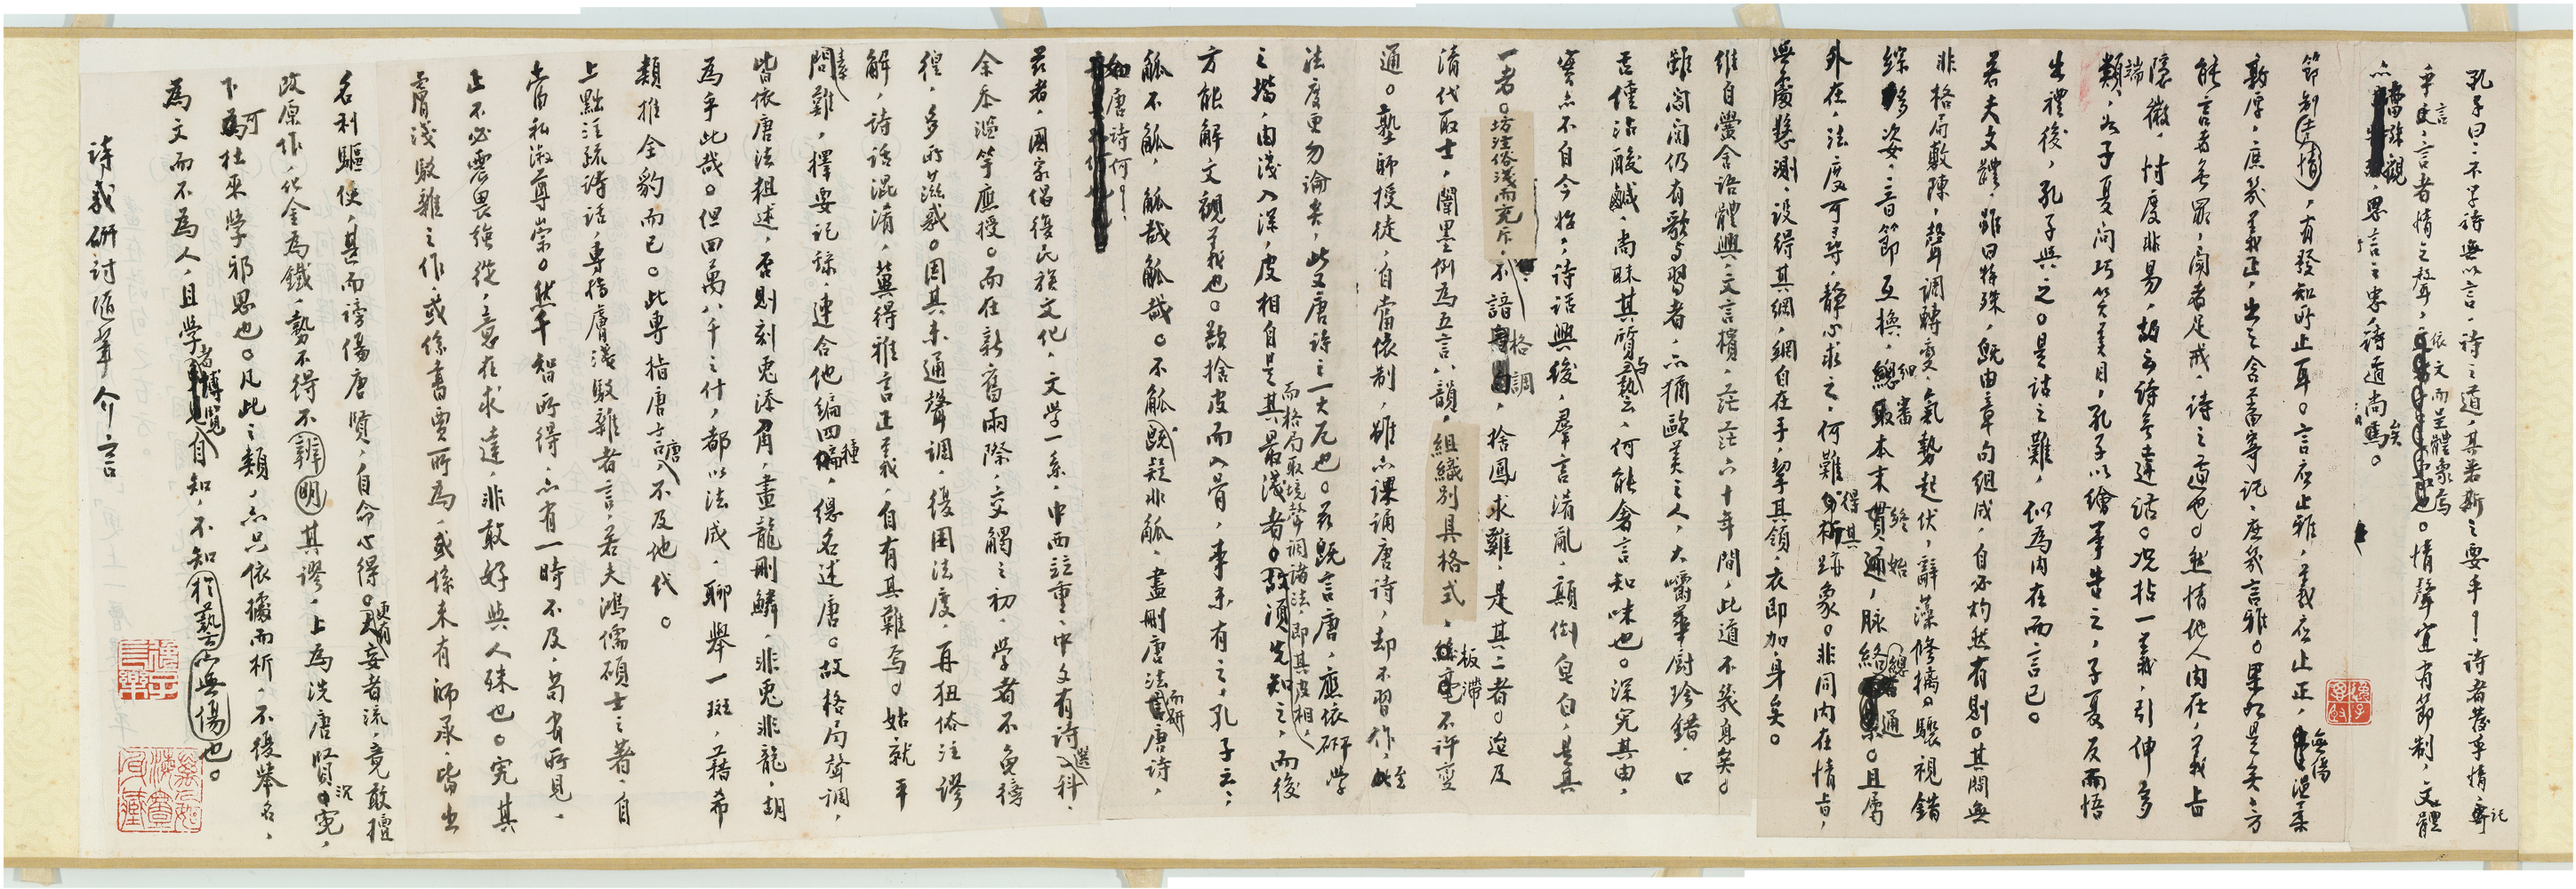 孔子曰：不學詩無以言。詩之道，其若斯之要乎！詩者發乎情寄託
乎言，言者情之聲，依文而呈體象焉。情聲宜有節制，文體
亦當殊觀，思言之忠，詩道尚矣。
節制其情，有發知所止耳。言應止雅，義應止正，無傷溫柔
敦厚，庶幾義正，出之含蓄寄託，庶幾言雅。果如是矣，方
能言者無罪，聞者足戒，詩之道也。然情他人內在，義旨
隱微，忖度非易，故云詩無達詁。況拈一義，引伸多
端類，如子夏問巧笑美目，孔子以繪事告之，子夏反而悟
出禮後，孔子與之。是詁之難，似為內在而言已。
若夫文體，雖曰特殊，既由章句組成，自必灼然有則。其間無
非格局敷陳，聲調轉變，氣勢起伏，辭藻修摛。驟視錯
綜多姿，音節互換，細審本末終始貫通，脉絡總通。且屬
外在，法度可尋，靜心求之，何難得其跡象。非同內在情旨，
無處懸測，設得其綱，綱自在手，挈其領，衣即加身矣。
維自黌舍語體興，文言擯，茫茫六十年間，此道不幾息矣。
雖間閻仍有歌與習者，亦猶歐美之人，大嚼華厨珍錯，口
舌僅沾酸鹹，尚昧其質與藝云，何能奢言知味也。深究其由，
實亦不自今始，詩話興後，羣言淆亂，顛倒皂白，是其
一者。坊注俗淺而充斥，不諳格調，捨鳳求雞，是其二者。迨及
清代取士，闈墨例為五言八韻，組織別具格式，板滯不許變
通。塾師授徒，自當依制，雖亦課誦唐詩，却不習作，至
法度更勿論矣，此又唐詩之一大厄也。茲既言唐，應依研學
之階，由淺入深，皮相自是其最淺者。而格局取境聲調諸法，即其皮相，須先知之，而後
方能解文視義也。歎捨皮而入骨，事未有之，孔子云：
觚不觚，觚哉觚哉。不觚既疑非觚，盡刪唐法而妍唐詩，
如唐詩何！
茲者，國家倡復民族文化，文學一系，中西竝重，中文有詩選科，
余忝濫竽應授。而在新舊兩際，交觸之初，學者不免徬
徨，多所滋惑。因其未通聲調，復困法度，再狃俗注謬
解，詩話混淆，冀得雅言正義，自有其難焉。姑就平
素問難，擇要記錄，連合他編四種，總名述唐。故格局聲調，
皆依唐法粗述，否則刻兔添角，畫龍刪鱗，非兔非龍，胡
為乎此哉。但四萬八千之什，都以法成，聊舉一斑，藉希
類推全豹而已。此專指唐言，不及他代。
上點注疏詩話，專指膚淺駁雜者言，若夫鴻儒碩士之著，自
當私淑尊崇。然千智所得，亦有一時不及，苟有所見，
止不必震畏強從，意在求達，非敢好與人殊也。究其
膚淺駁雜之作，或係書賈所為，或係未有師承，皆出
名利驅使，甚而謗傷唐賢，自命心得。更有妄者流，竟敢擅
改原作，化金為鐵，勢不得不辨明其謬，上為洗唐賢沉冤，
下可杜來學邪思也。凡此之類，亦只依據而析，不復舉名，
為文而不為人，且學者博覽自知，不知於藝亦無傷也。
詩義研討隨筆介言